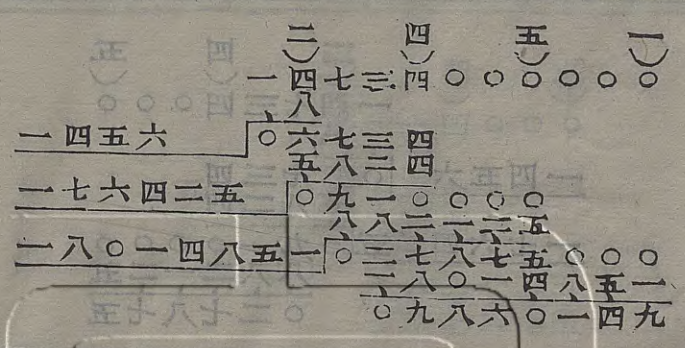 二)四)五)一)
一四七三四〇〇〇〇〇〇
八
一四五六 〇六七三四
五八二四
一七六四二五 〇九一〇〇〇〇
八八二一二五
一八〇一四八五一 〇二七八七五〇〇〇
一八〇一四八五一
〇九八六〇一四九